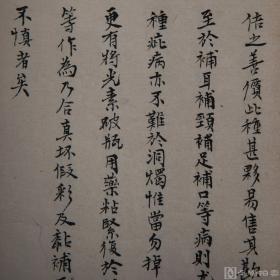 倍之善價此種甚夥易售其欺
至於補耳補頸補足補口等病則尤
種疵病亦不難於洞燭惟當勿掉
更有將光素破瓶用藥粘緊復於
等作為乃合真坯假彩及黏補
不慎者矣